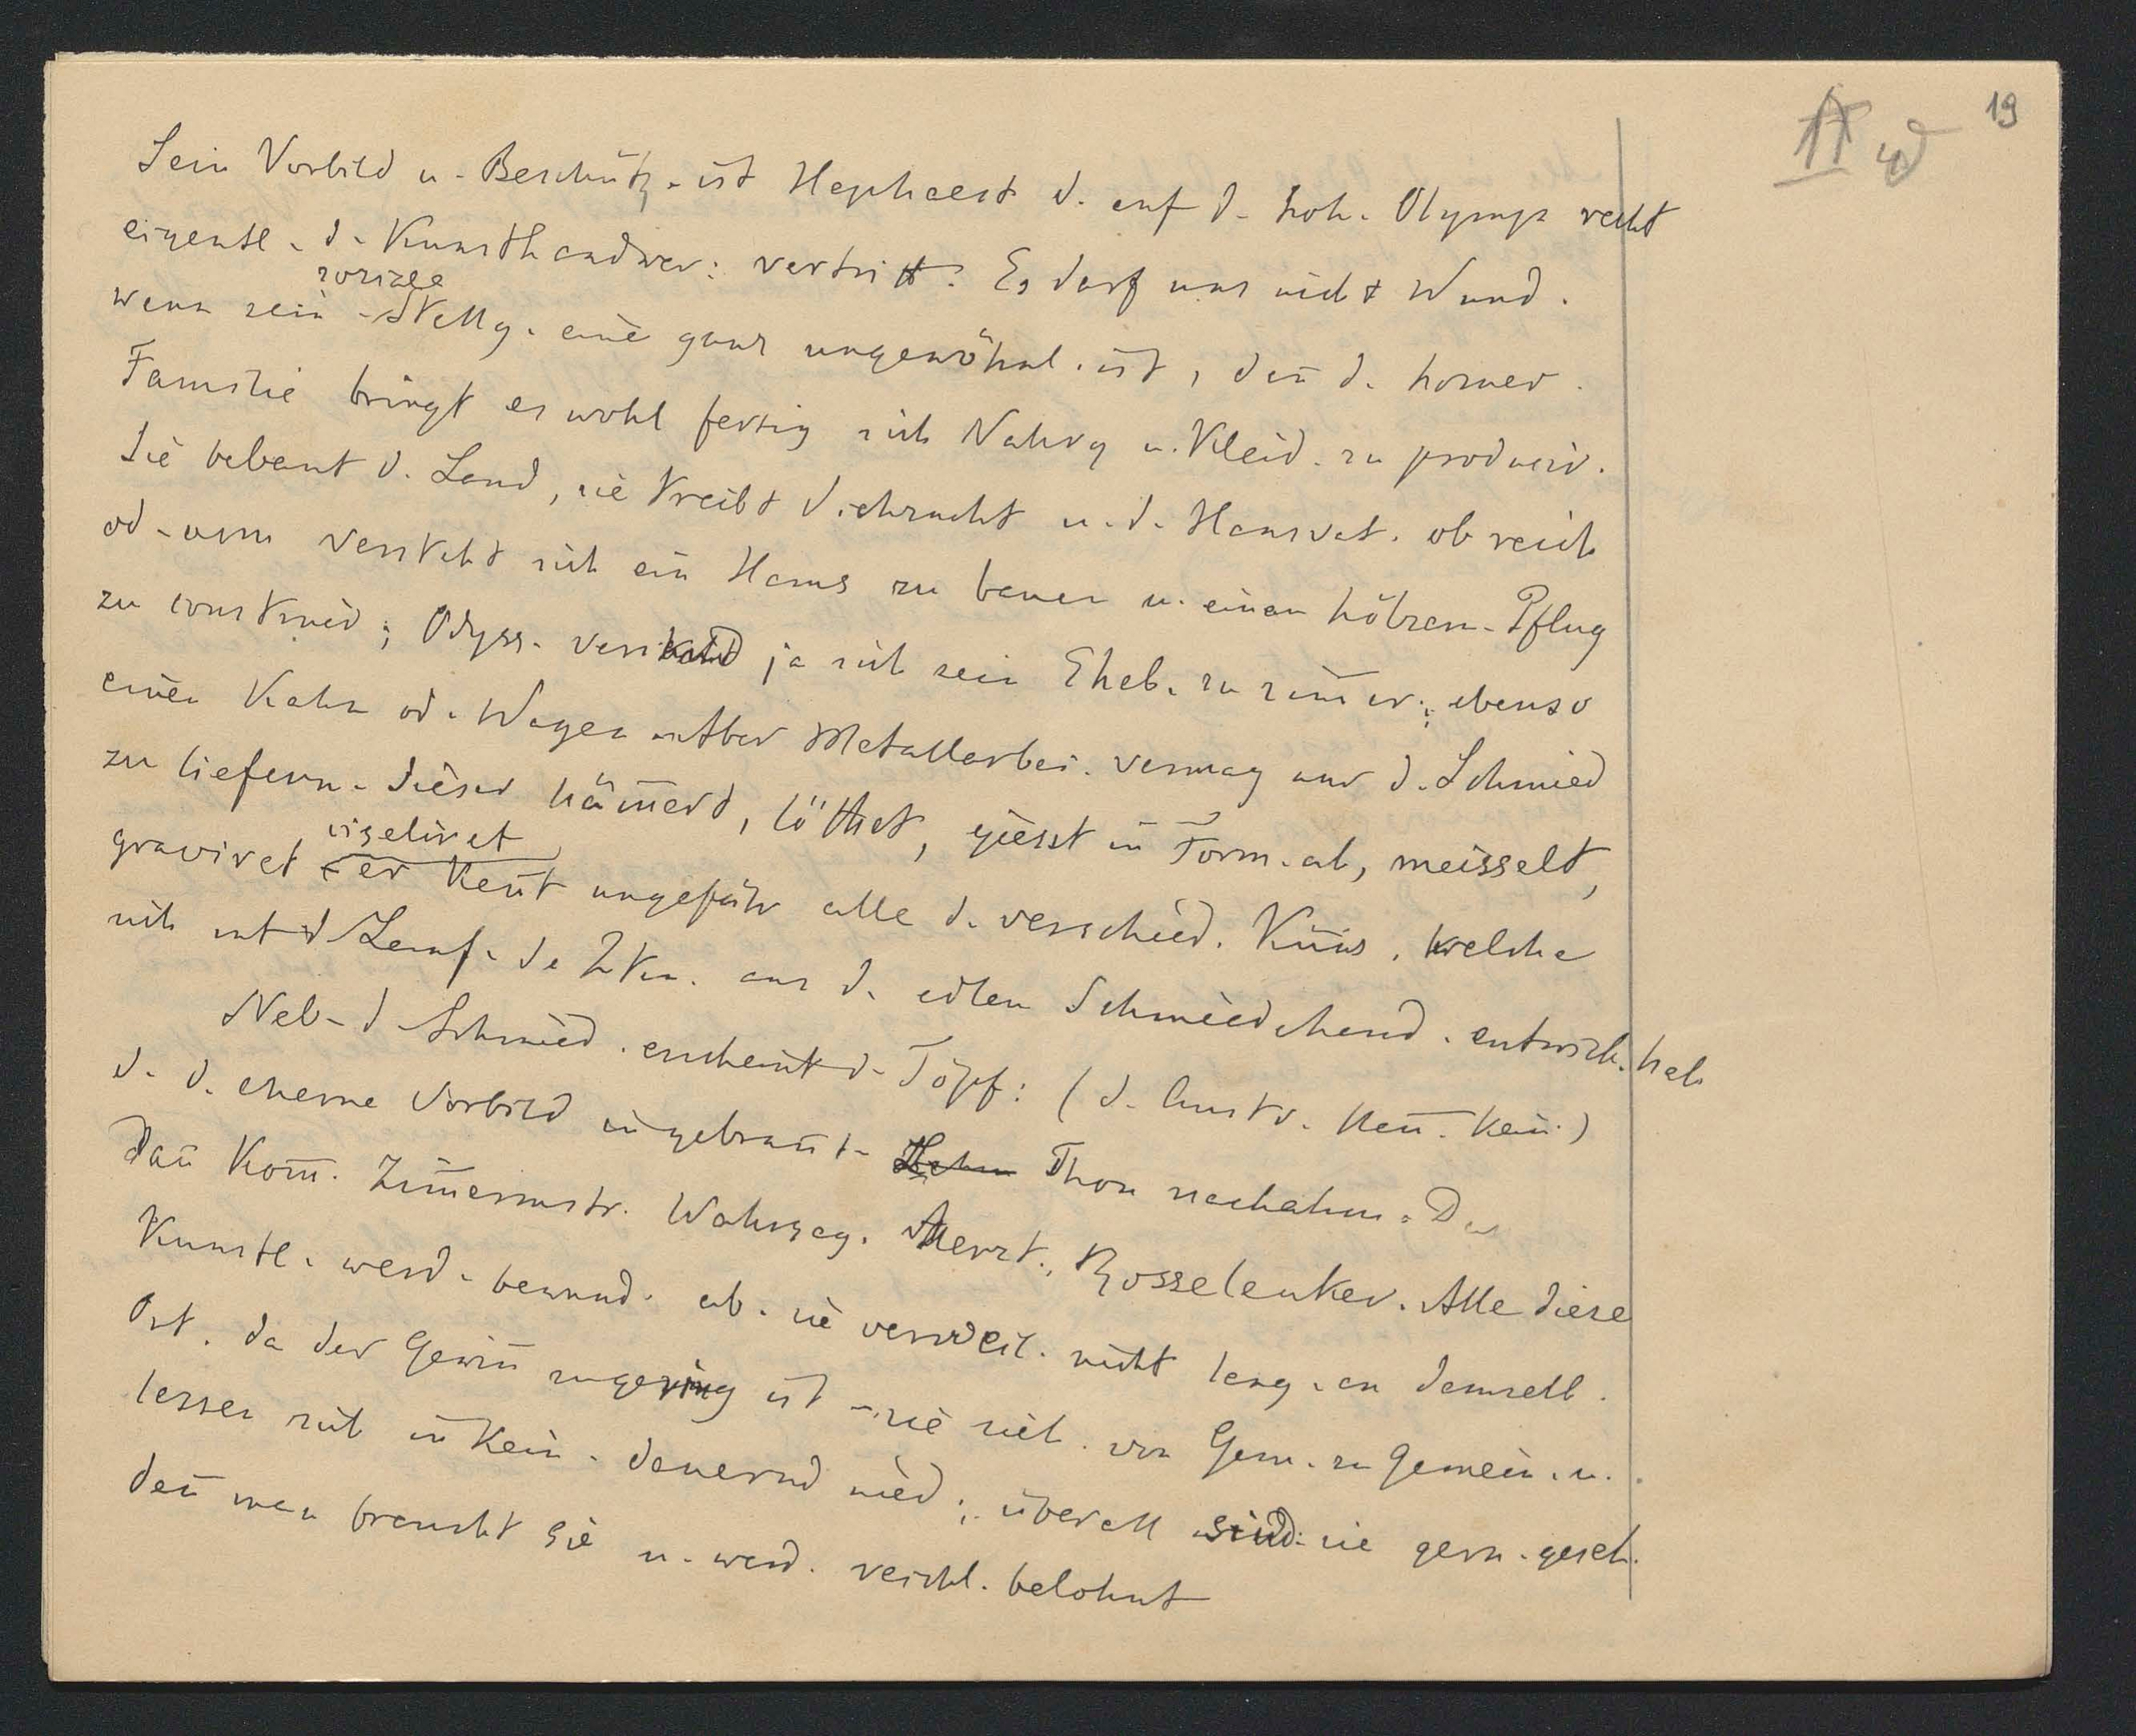 19
Sein Vorbild u. Beschütz. ist Hephaest d. auf d. hoh. Olymp recht
eigentl. d. Kunsthandwer: vertritt. Es darf uns nicht Wund.
sociale
wenn sein Stellg. eine ganz ungewöhnl. ist, deñ d. homer.
Familie bringt es wohl fertig sich Nahrg u. Kleid. zu producir.
Sie bebaut d. Land, sie treibt Viehzucht u. d. Hausvat. ob reich
od. arm versteht sich ein Haus zu bauen u. einen hölzern. Pflug
zu construir; Odyss. verstand ja sich sein Eheb. zu zim̄er; ebenso
einen Kahn od. Wagen. Aber Metallarbei. vermag nur d. Schmied
zu liefern. Dieser häm̄ert, löthet, giesst in Form. ab, meisselt,
ciseliret
graviret er keñt ungefähr alle d. verschied. Küns. welche
sich mt d Lauf. de Zten. aus d. edlen Schmiedehand. entwick. hab
Neb. d Schmied. erscheint d. Töpf: (d. Austr. keñ. kein.)
d. d. eherne Vorbild in gebrañt. Thon nachahm.
Dañ kom̄. Zim̄ermstr. Wahrsag. Aerzt., Rosselenker. Alle diese
Künstl. werd. bewund. ab. sie verweil. nicht lang. an demselb.
Ort. da der Gewiñ zu gering ist sie zieh. von Gem. zu Gemein. u.
lassen sich in kein. dauernd nied; überall sind sie gern. geseh.
deñ man braucht sie u. werd. reichl. belohnt